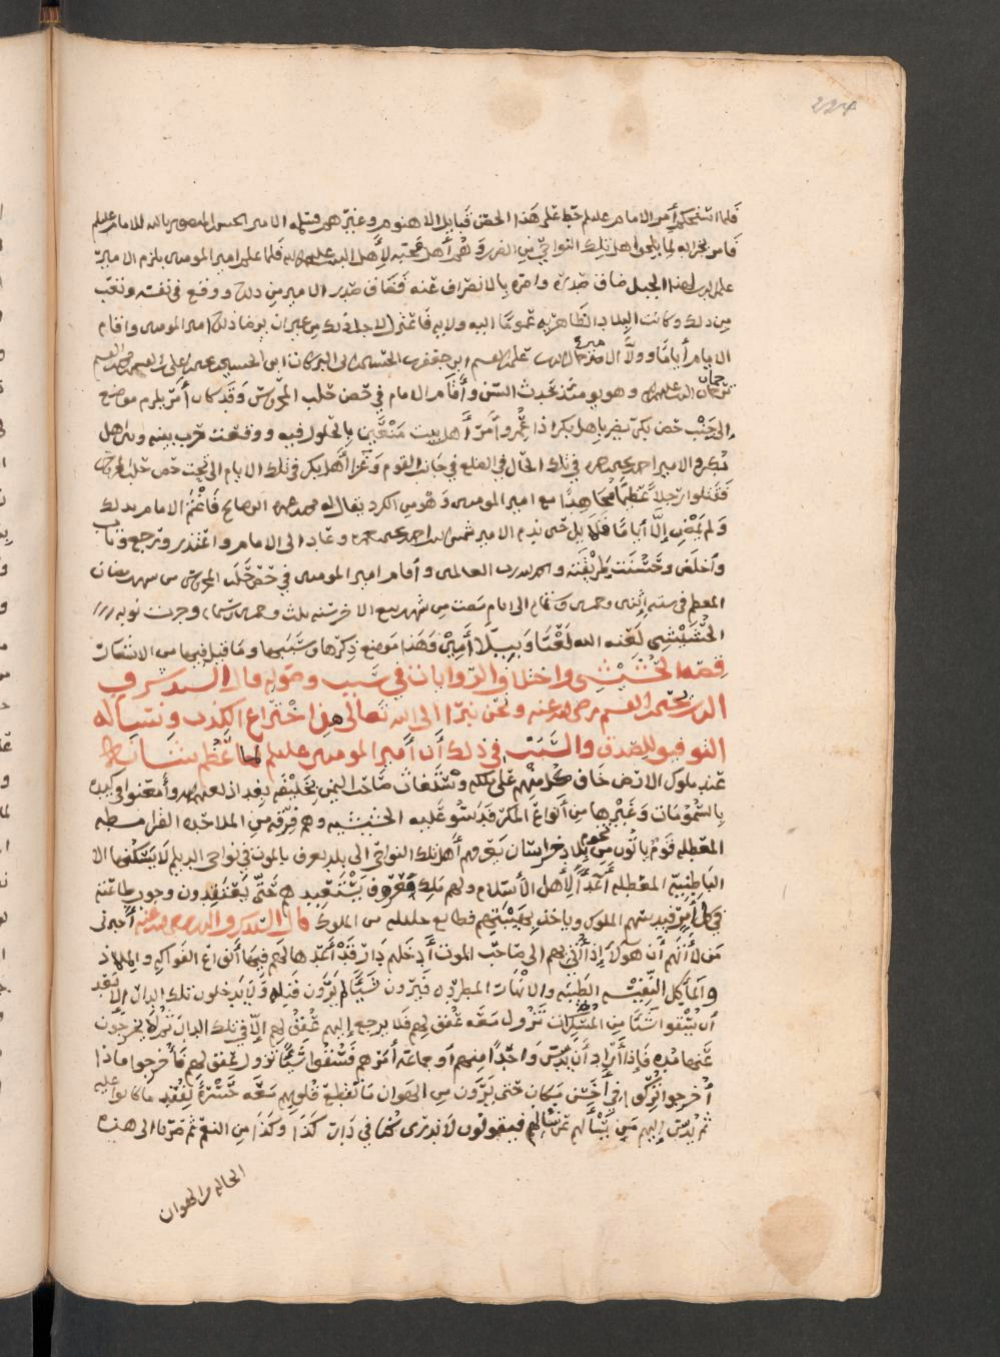 224
فلما استحكم أمر الامام عليلم حط على هذا الحصن قبايل الاهنوم وغيرهم وسلمه الامير الحسن المنصور بالله للامام عليلم
فامر بخرابه لما يلحق اهل تلك النواحي من الضرر وهم أهل محبة لأهل البيت عليهم فلما علم امير المومنين بلزم الامير
علم الدين لهذا الجبل ضاق صدره وامره بالانصراف عنه فضاق صدر الامير من ذلك ووقع في نفسه وتعب
من ذلك وكانت البلاد الظاهريه مضمومة اليه ولايه فاغتم لاجل ذلك امير المومنين واقام
الايام أياما وولا الامير
وهو يومئذ حدث السن وأقام الامام في حصن حلب المحروس وقد كان أمر بلزم موضع
الى جنب حصن بكر يضر باهل بكر اذا عمر وأمر أهل بيت بالحلول فيه ووقعت حرب بينه وبين اهل
بكر والامير احمد بن في تلك الحال في الضلع في جانب القوم وغزا أهل بكر في تلك الايام الى تحت حصن حلب المحروس
فقتلوا رجلا عظيما مجاهدا مع امير المومنين وهو من الكرد يقال له محمد فاغتم الامام بذلك
ولم يمض إلا أياما قلايل حتى ندم الامير شمس الدين احمد بن وعاد الى الامام واعتذر ورجع وتاب
وأخلص وحسنت طريقته والحمد لله رب العالمين وأقام امير المومنين في حصن حلب المحروس من شهر رمضان
المعظم في سنه إثنتين وخمسين وستمايه الى ايام مضت من شهر ربيع الاخر سنه ثلث وخمسين وستمايه وجرت نوبه
الحشيشي لعنه الله لعنا وبيلا أمين وهذا موضع ذكرها وسببها وما قيل فيها من الاشعار
قصه الحشيشي واختلاف الروايات في سبب وصوله قال السيد شرف
الدين يحيى بن القسم رضي الله عنه ونحن نبرا الى الله تعالى من اختراع الكذب ونسأله
التوفيق للصدق والسبب في ذلك أن أمير المومنين عليلم لما عظم شانه
عند ملوك الارض خاف كل منهم على ملكه واستغاث صاحب اليمن بخليفه بغداد لعنهم الله وأمعنوا في كيده
بالسمومات وغيرها من أنواع المكر فدسوا عليه الحشيشيه وهم فرقه من الملاحده القرامطه
المعطله قوم ياتون من نحو بلاد خراسان يعرفهم أهل تلك النواحي الى بلد يعرف بالموت في نواحي الديلم لا يسكنها الا
الباطنية المعطله أعدآ لأهل الأسلام ولهم ملك يستعبدهم حتى يعتقدون وجوب طاعته
في كل أمر فيدسهم الملوك وياخذ بهيبتهم قطايع جليله من الملوك قال السيد شرف الدين رضي الله عنه أخبرني
من لا أتهم أن هولاء إذا أتي بهم الى صاحب الموت أدخلهم دار قد أعد ها لهم فيها أنواع الفواكه والملاذ
والمآكل النفيسه الطيبه والانهار المطرده فيرون شيئا لم يرون قبله ولا يدخلون تلك الدار الا بعد
أن يسقوا شيئا من المسكرات تزول معه عقولهم فلا يرجع إليهم عقولهم إلا في تلك الدار ثم لا يخرجون
عنها مده فإذا أراد أن يدس واحدا منهم أو جماعه أمرهم فسقوا شيئا تزول عقولهم فأخرجوا فاذا
أخرجوا تركوا في أخس مكان حتى يرون من الهوان ما تقطع قلوبهم معه حسرة لفقد ما كانوا عليه
ثم يدس إليهم من يسألهم عن حالهم فيقولون لا ندري كنا في دار كذا وكذا من النعم ثم صرنا الى هذه
الحاله والهوان